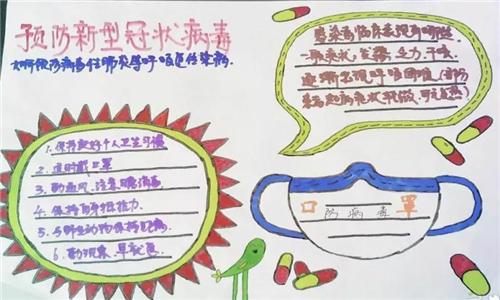 预防新型冠状病毒
如何预防病毒性肺炎等呼吸道传染病.
感染者临床表现有哪些
一般症状:发热、乏力、干咳、
逐渐出现呼吸困难(部分
患者起病症状轻微、可无发热)
1.保持良好个人卫生习惯
2.适时戴口罩
3.勤通风,注意腾消毒
4.保持自身抵抗力
5.与野生动物保持距离
6.勤观察、早就医
口防病毒罩